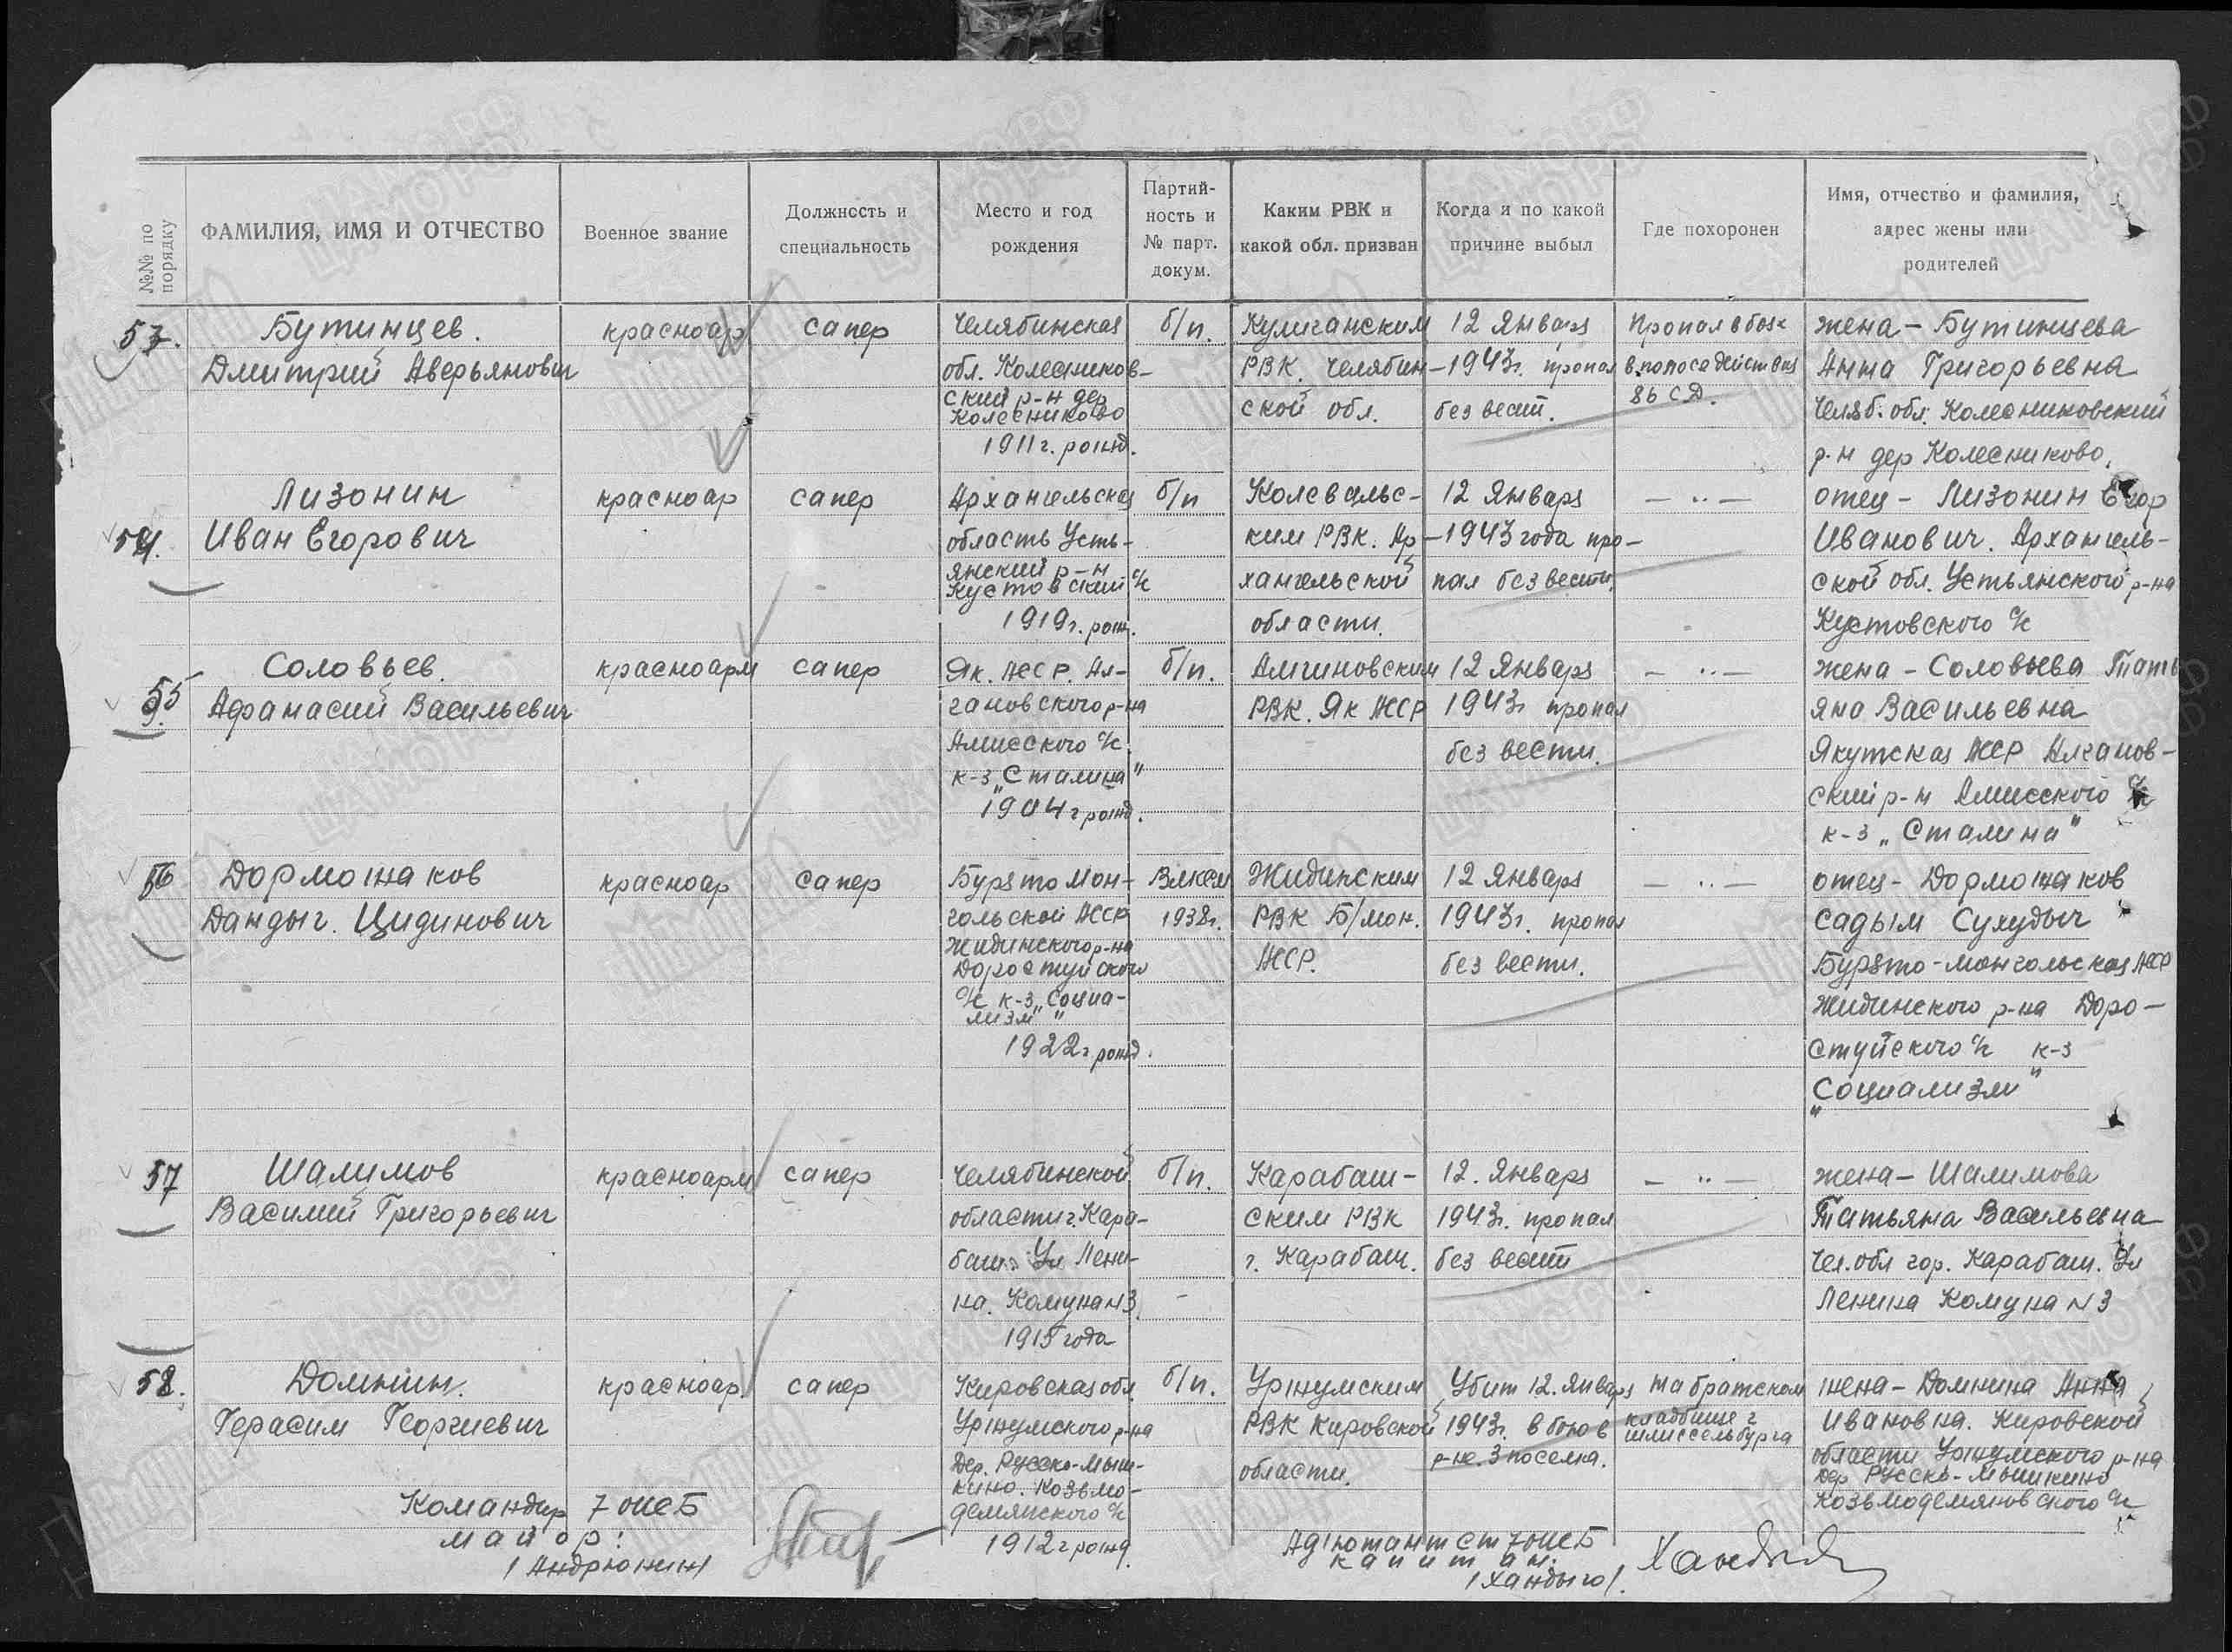 №№ по порядку
ФАМИЛИЯ, ИМЯ И ОТЧЕСТВО
Военное звание
Должность и
специальность
Место и год
рождения
Партий-
ность и
№ парт.
докум.
Каким РВК и
какой обл. призван
Когда и по какой
причине выбыл
Где похоронен
Имя, отчество и фамилия,
адрес жены или
родителей
53.
Бутинцев.
Дмитрий Аверьянович
красноар
сапер
Челябинская
обл. Колесников-
ский р-н дер
Колесниково
1911 г. рожд.
б/п.
Кулиганским
РВК. Челябин-
ской обл.
12 Января
1943г. пропал
без вест.
Пропал в бою
в полосе действия
86 СД.
жена - Бутинцева
Анна Григорьевна
Челяб. обл. Колесниковский
р-н дер Колесниково.
54.
Лизонин
Иван Егорович
красноар
сапер
Архангельская
область Усть-
янский р-н
Кустовский с/с
1919г. рож.
б/п
Колевальс-
ким РВК. Ар-
хангельской
области.
12 Января
1943 года про-
пал без вести.
— ·· —
отец - Лизонин Егор
Иванович. Архангель-
ской обл. Устьянского р-на
Кустовского с/с
55
Соловьев.
Афанасий Васильевич
красноарм
сапер
Як. АССР. Ал-
гановского р-на
Амисского с/с
к-з „Сталина"
1904 г рожд.
б/п.
Амгиновским
РВК. Як АССР
12 Января
1943г пропал
без вести.
— ·· —
жена - Соловьева Тать
яна Васильевна
Якутская АССР Алганов-
ский р-н Амисского с/с
к-з „Сталина"
56
Дорможаков
Дандыг. Цидинович
красноар
сапер
Бурято Мон-
гольской АССР
Жидинского р-на
Доростуйского
с/с к-з „Социа-
лизм"
1922 г рожд.
ВЛКСМ
1938г.
Жидинским
РВК Б/мон.
АССР.
12 Января
1943г. пропал
без вести.
— ·· —
отец - Дорможаков
Садым Сухудыч
Бурято-Монгольская АССР
Жидинского р-на Доро-
стуйского с/с к-з
„Социализм"
57
Шалимов
Василий Григорьевич
красноарм
сапер
Челябинской
области г. Кара-
баш. Ул Лени-
на. Комуна №3
1915 года
б/п.
Карабаш-
ским РВК
г. Карабаш.
12. Января
1943г. пропал
без вест
— ·· —
жена - Шалимова
Татьяна Васильевна
Чел. обл гор. Карабаш. Ул
Ленина Комуна №3
58.
Домнин.
Герасим Георгиевич
красноар.
сапер
Кировская обл
Уржумского р-на
Дер. Русско-Мыш-
кино. Козьмо-
демянского с/с
1912 г рожд.
б/п.
Уржумским
РВК Кировской
области.
Убит 12. Января
1943г. в бою в
р-не. 3 поселка.
На братском
кладбище г
шлиссельбурга
жена - Домнина Анна
Ивановна. Кировской
области Уржумского р-на
дер Русско-Мышкино
Козьмодемяновского с/с
Командир 7 ошсБ
майор:
/Андрюнин/
Адютант ст 7 ошсБ
капитан.
/Хандыго/.